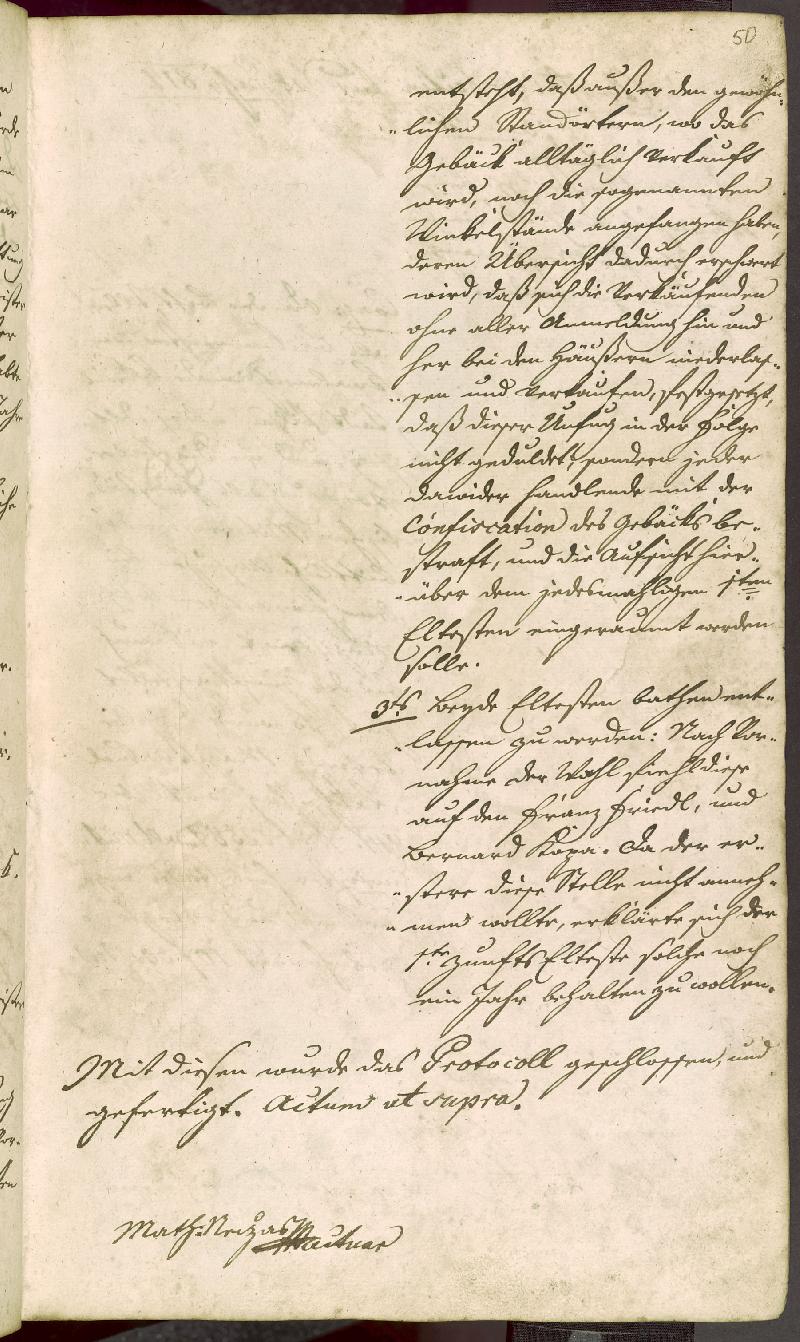 50
entsteht, daß außer den gewöhn-
lichen Standörtern, wo das
Gebäck alltäglich verkauft
wird, noch die sogenannten
Winkelstände angefangen haben,
deren Übersicht dadurch erschwert
wird, daß sich die Verkäufenden
ohne aller Anmeldung hin und
her bei den Häußern niederlas-
sen und verkaufen, festgesetzt,
daß dieser Unfug in der Folge
nicht geduldet, sondern jeder
dawider handlende mit der
Confiscation des Gebäcks be-
straft, und die Aufsicht hier-
über dem jedesmahligen 1ten
Eltesten eingeraumt werden
solle.
3ts Beyde Eltesten bathen ent-
lassen zu werden: Nach Vor-
nahme der Wahl fiehl diese
auf den Franz Friedl, und
Bernard Kopa. Da der er-
stere diese Stelle nicht anneh-
men wollte, erklärte sich der
1te Zunfts Elteste solche noch
ein Jahr behalten zu wollen.
Mit diesen wurde das Protocoll geschlossen, und
gefertigt. Actum ut supra.
Math: